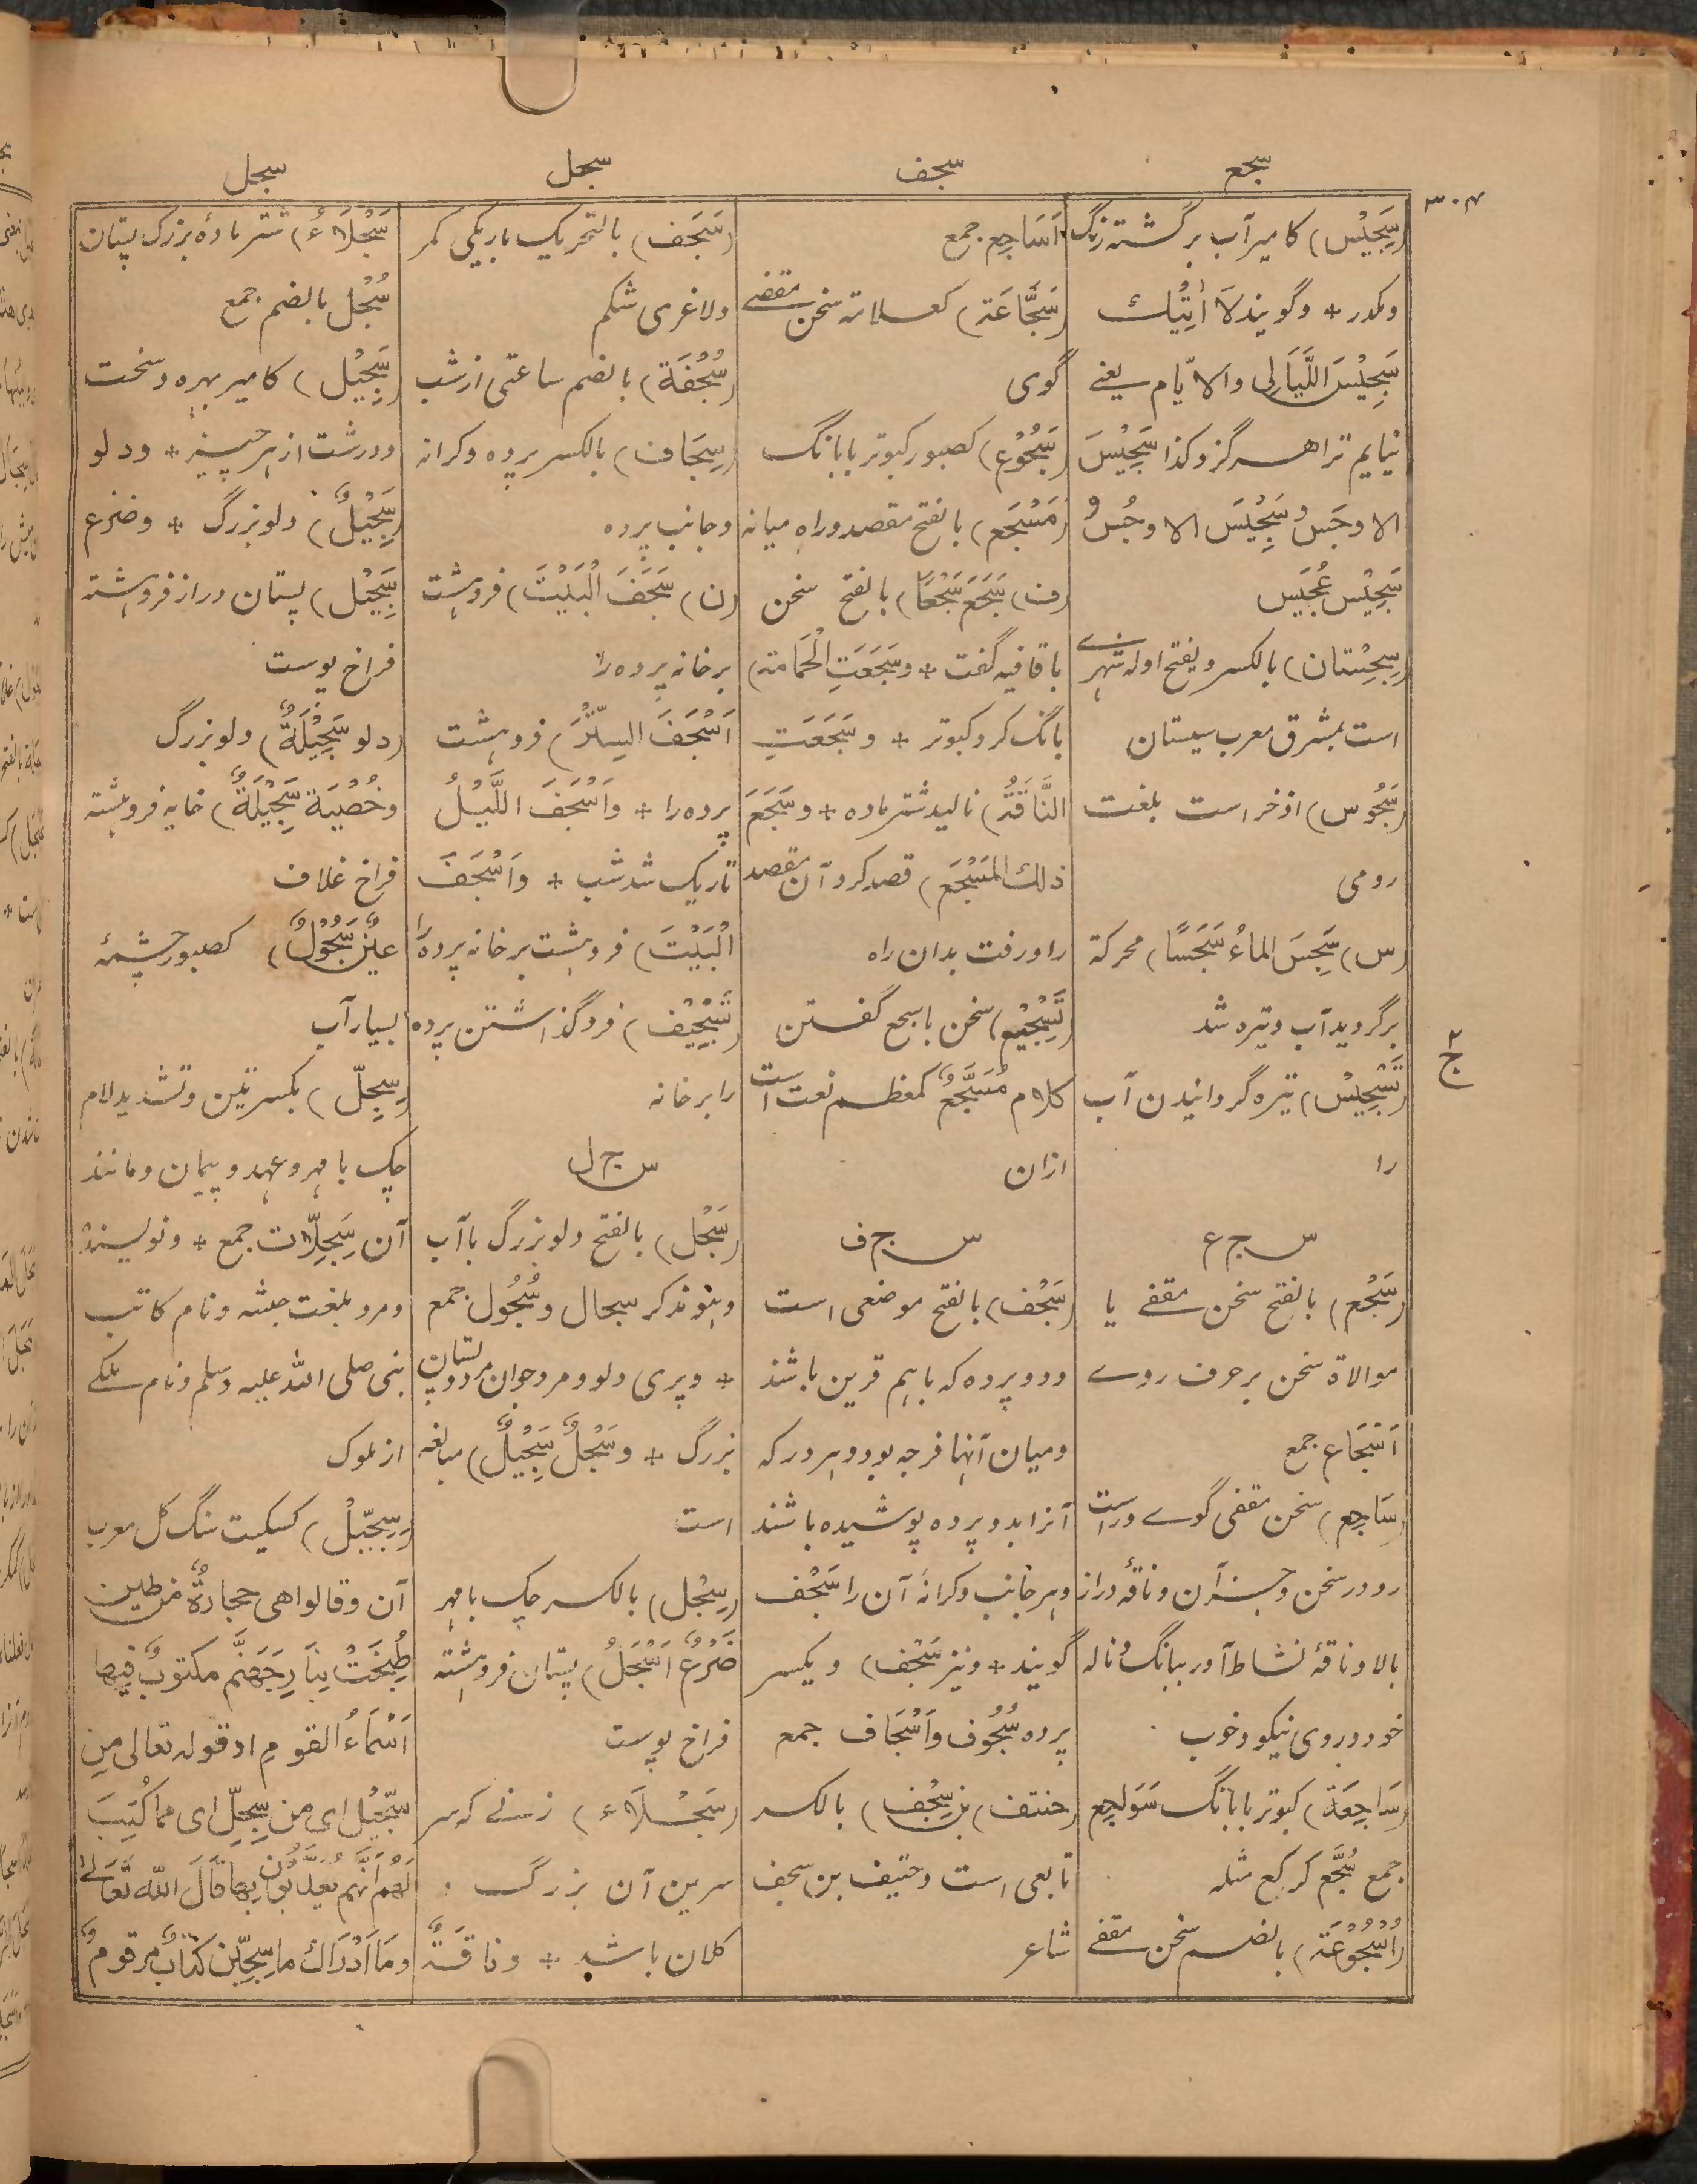 سجع
سجف
سجل
سجل
۳۰۴
(سَجِيْس) کامیر آب برگشته رنگ
ومکدر + وگویند لاَ اٰتِيْك
سَجِيْسَ اللَّيَالِى والاَيّام یعنے
نیایم ترا هرگز وکذا سَجِيْسَ
الاوجَسِ وسَجِيْسَ الاوجُسِ و
سَجِيْس عُجَيْس
(سِجِسْتان) بالکسر ویفتح اوله شهرے
است بمشرق معرب سیستان
(سَجُوس) اذخر است بلغت
رومی
(س) سَجِسَ الماءُ سَجَسًا) محرکة
برگردید آب وتیره شد
(تَسْجِيْس) تیره گردانیدن آب
را
س ج ع
(سَجْع) بالفتح سخن مقفے یا
موالاة سخن بر حرف روے
اَسْجَاع جمع
(سَاجِع) سخن مقفی گوے وراست
رو در سخن وجز آن وناقۀ دراز
بالا وناقۀ نشاط آور ببانگ وناله
خود وروی نیکو وخوب
(سَاجِعَة) کبوتر با بانگ سَوَاجِع
جمع سُجَّع کرکع مثله
(اُسْجُوْعَة) بالضم سخن مقفے
اَسَاجِع جمع
(سَجَّاعَة) کعلامة سخن مقفے
گوی
(سَجُوْع) کصبور کبوتر با بانگ
(مَسْجَع) بالفتح مقصد وراه میانه
(ف) سَجَعَ سَجْعًا) بالفتح سخن
با قافیه گفت + وسَجَعَتِ الْحَمَامَة)
بانگ کرد کبوتر + وسَجَعَتِ
النَّاقَةُ) نالید شتر ماده + وسَجَعَ
ذلك المَسْجَعَ) قصد کرد آن مقصد
را ورفت بدان راه
(تَسْجِيْع) سخن با سجع گفتن
کلام مُسَجَّعٌ کمعظم نعت است
ازان
س ج ف
(سَجْف) بالفتح موضعی است
ودو پرده که باهم قرین باشند
ومیان آنها فرجه بود وهر در که
آنرا بدو پرده پوشیده باشند
وهر جانب وکرانۀ آن را سَجْف
گویند + ونیز سَجْف) ویکسر
پرده سُجُوف واَسْجَاف جمع
(حنتف) بن سِجْف) بالکسر
تابعی است وحتیف بن سجف
شاعر
(سَجَف) بالتحریك باریکی کمر
ولاغری شکم
(سُجْفَة) بالضم ساعتی از شب
(سِجَاف) بالکسر پرده وکرانه
وجانب پرده
(ن) سَجَفَ الْبَيْتَ) فروهشت
بر خانه پرده را
اَسْجَفَ السِّتْرَ) فروهشت
پرده را + واَسْجَفَ اللَّيْلُ
تاریک شد شب + واَسْجَفَ
الْبَيْتَ) فروهشت بر خانه پرده را
(تَسْجِيْف) فروگذاشتن پرده
را بر خانه
س ج ل
(سَجْل) بالفتح دلو بزرگ با آب
وهو مذکر سجال وسُجُول جمع
+ وپری دلو ومرد جوانمرد وپستان
بزرگ + وسَجْلٌ سَجِيْلٌ) مبالغه
است
(سِجْل) بالکسر چک با مهر
ضَرْعٌ اَسْجَلُ) پستان فروهشته
فراخ پوست
(سَجْلَاء) زنے که سر
سرین آن بزرگ
کلان باشد + وناقَةٌ
سَجْلَاءُ) شتر مادۀ بزرگ پستان
سُجْل بالضم جمع
(سَجِيْل) کامیر بهره وسخت
ودرشت از هر چیز + ودلو
(سَجِيْلٌ) دلو بزرگ + وضرع
سَجِيْل) پستان دراز فروهشته
فراخ پوست
(دلو سَجِيْلَةٌ) دلو بزرگ
وخُصْيَة سَجِيْلَةٌ) خایه فروهشته
فراخ غلاف
عينٌ سَجُوْلٌ) کصبور چشمۀ
بسیار آب
(سِجِلّ) بکسرتین وتشدید لام
چک با مهر وعهد وپیمان ومانند
آن سِجِلَّات جمع + ونویسنده
ومرد بلغت حبشه ونام کاتب
نبی صلی الله علیه وسلم ونام ملکے
از ملوک
(سِجِّيْل) کسکیت سنگ گل معرب
آن وقالوا هى حجارةٌ من طين
طُبِخَتْ بِنَارِ جَهَنَّم مکتوبٌ فیها
اَسْمَاءُ القومِ او قوله تعالى مِن
سِجِّيْل اى من سِجِلِّ اى مما کُتِبَ
لَهُم اَنَّهم يُعَذَّبُوْن بها قَالَ الله تَعَالٰى
وَمَا اَدْرَاكَ ما سِجِّيْن کتابٌ مرقومٌ و
ج۲